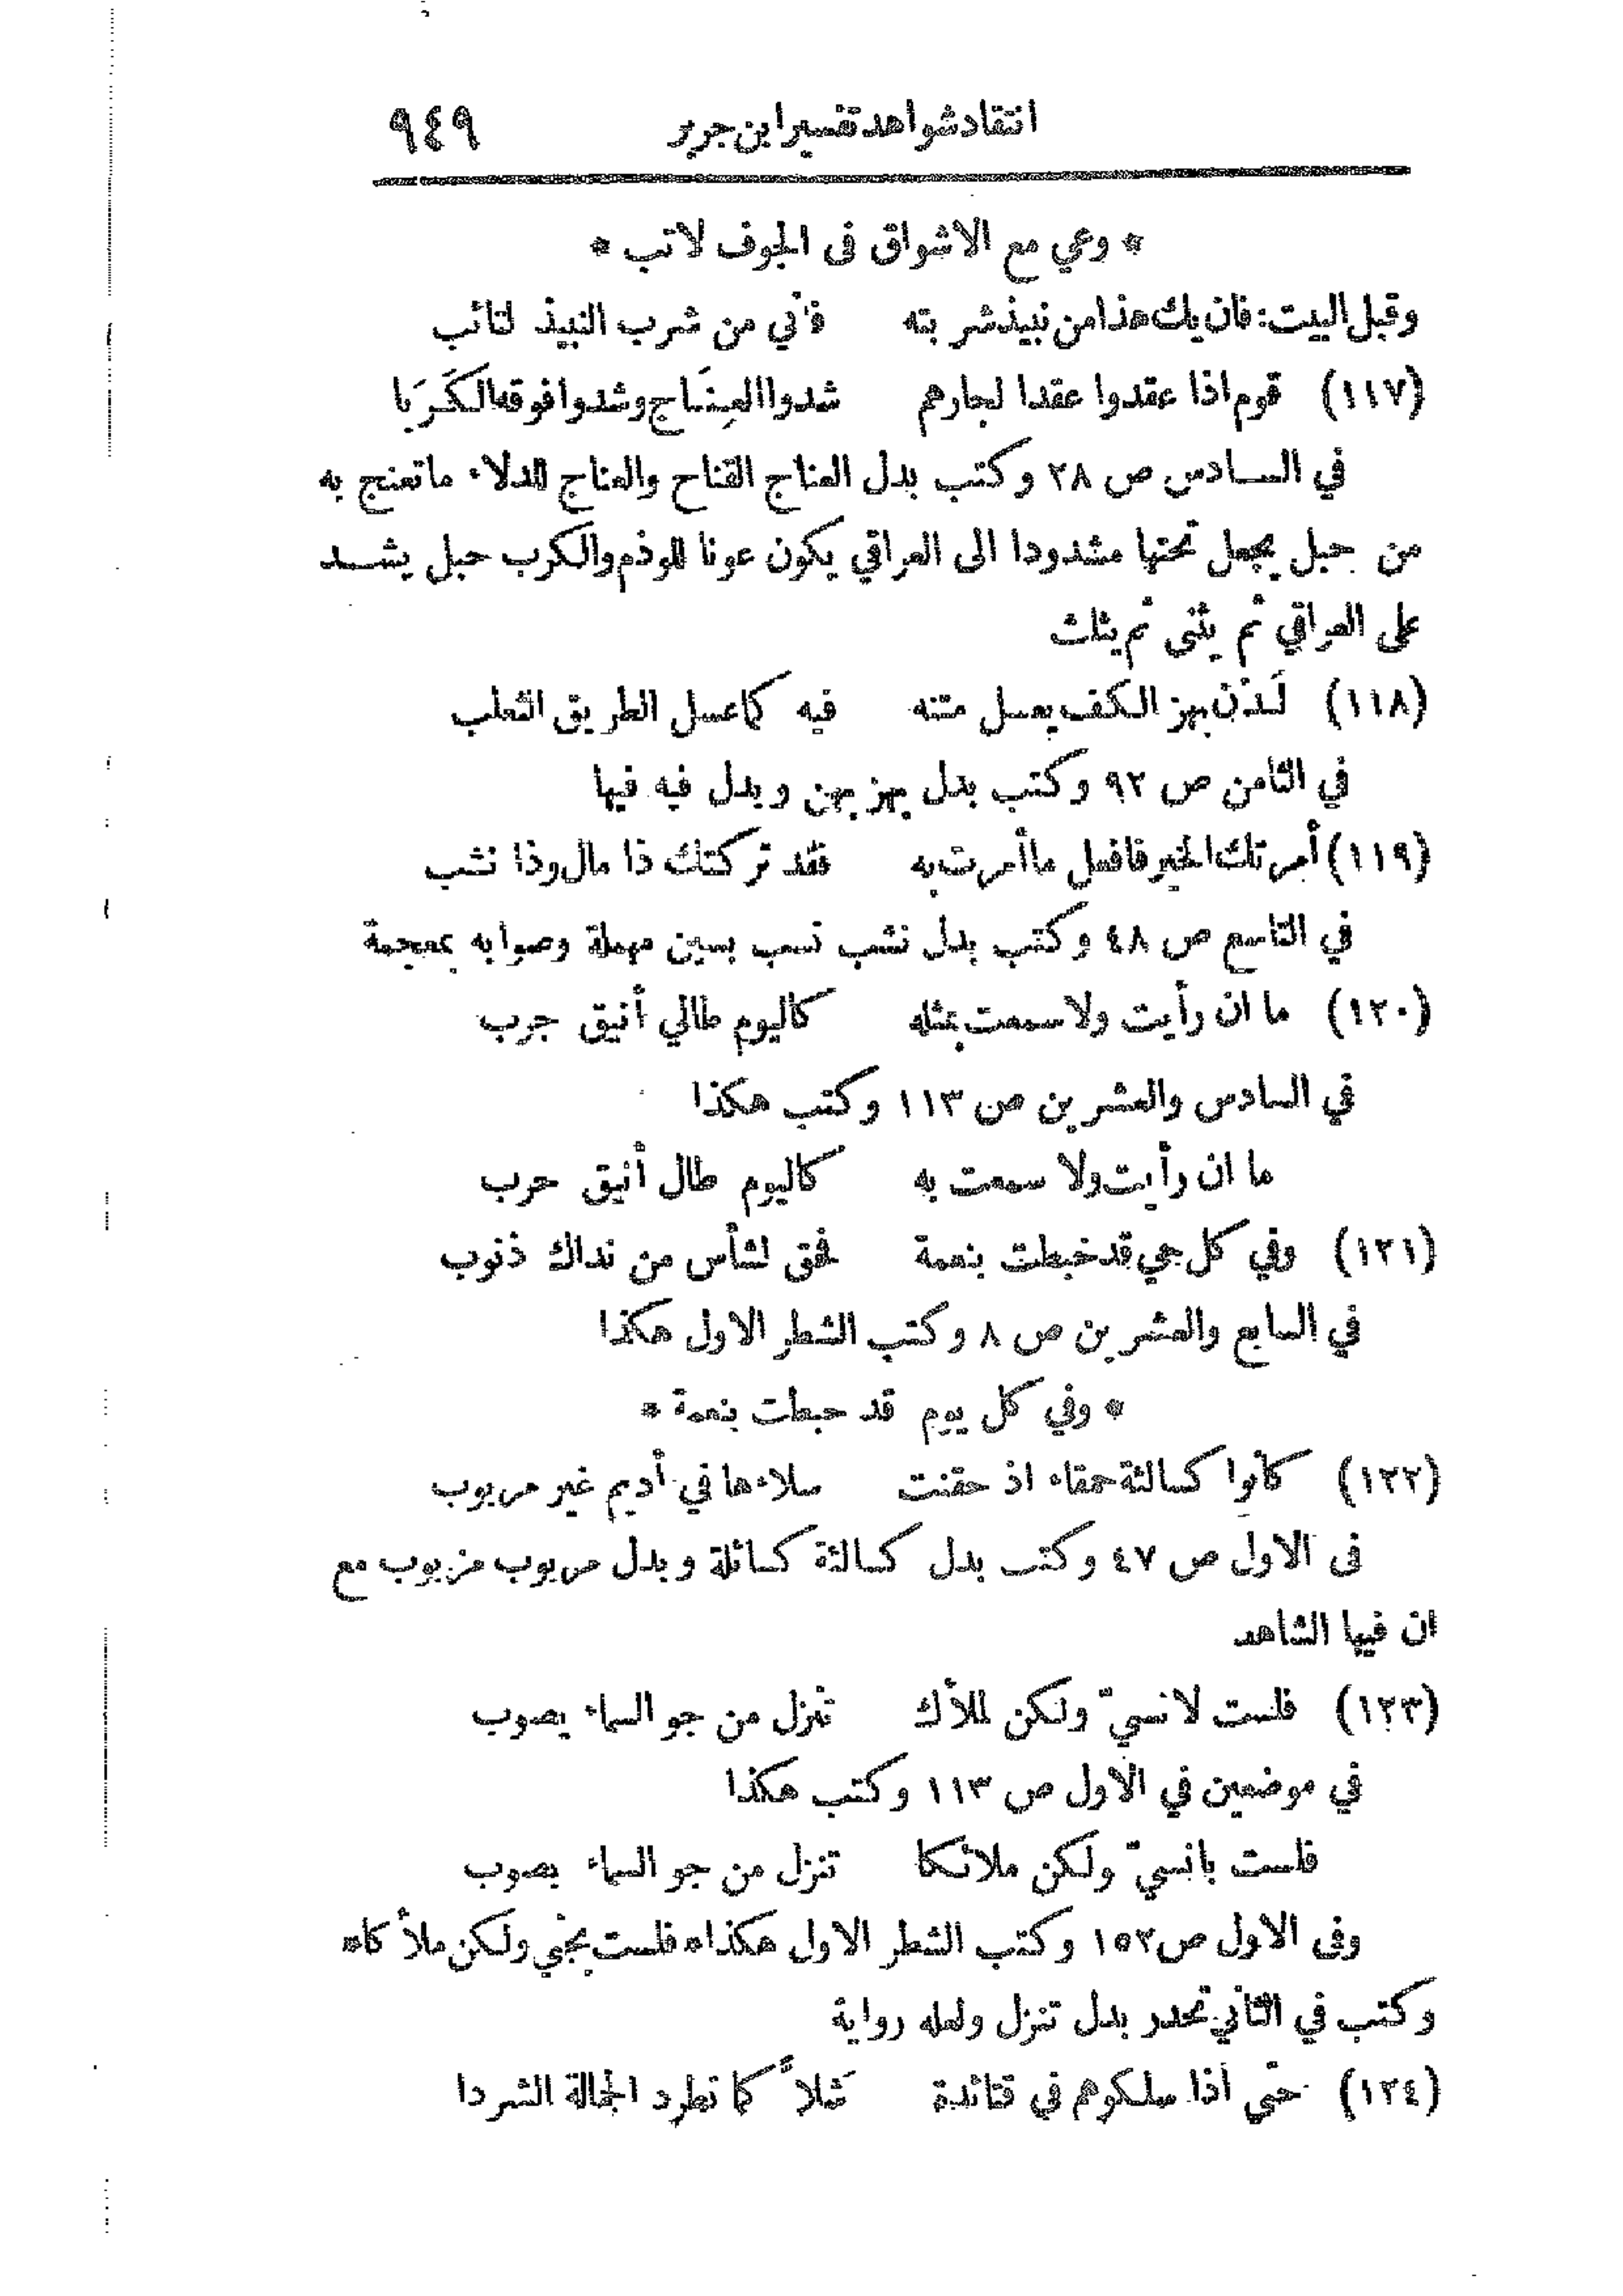 انتقاد شواهد تفسير ابن جرير ٩٤٩
* وعي مع الاشواق فى الجوف لاتب *
وقبل البيت: فان يك هذا من نبيذ شربته فاني من شرب النبيذ لتائب
(١١٧) قوم اذا عقدوا عقدا لجارهم شدوا العِنَاج وشدوا فوقه الكَرَبا
في السادس ص ٢٨ وكتب بدل العناج القناح والعناج للدلاء ما تعنج به
من حبل يجعل تحتها مشدودا الى العراقي يكون عونا للوذم والكرب حبل يشد
على العراقي ثم يثنى ثم يثلث
(١١٨) لَدْن بهز الكف يعسل متنه فيه كما عسل الطريق الثعلب
في الثامن ص ٩٢ وكتب بدل بهز بهن وبدل فيه فيها
(١١٩) أمرتك الخير فافعل ما أمرت به فقد تركتك ذا مال وذا نشب
في التاسع ص ٤٨ وكتب بدل نشب نسب بسين مهملة وصوابه بمعجمة
(١٢٠) ما ان رأيت ولا سمعت بمثله كاليوم طالي أنيق جرب
في السادس والعشرين ص ١١٣ وكتب هكذا
ما ان رأيت ولا سمعت به كاليوم طال أنيق حرب
(١٢١) وفي كل حي قد خبطت بنعمة فحق لشأس من نداك ذنوب
في السابع والعشرين ص ٨ وكتب الشطر الاول هكذا
* وفي كل يوم قد حبطت بنعمة *
(١٢٢) كانوا كسالئة حمقاء اذ حقنت سلاءها في أديم غير مربوب
فى الاول ص ٤٧ وكتب بدل كسالئة كسائلة وبدل مربوب مزبوب مع
ان فيها الشاهد
(١٢٣) فلست لانسيّ ولكن لملأك تنزل من جو السماء يصوب
في موضعين في الاول ص ١١٣ وكتب هكذا
فلست بانسيّ ولكن ملائكا تنزل من جو السماء يصوب
وفى الاول ص ١٥٢ وكتب الشطر الاول هكذا * فلست بجني ولكن ملأكا *
وكتب في الثاني تحدر بدل تنزل ولعله رواية
(١٢٤) حتى أذا سلكوهم في قتائدة شلاًّ كما تطرد الجمالة الشردا